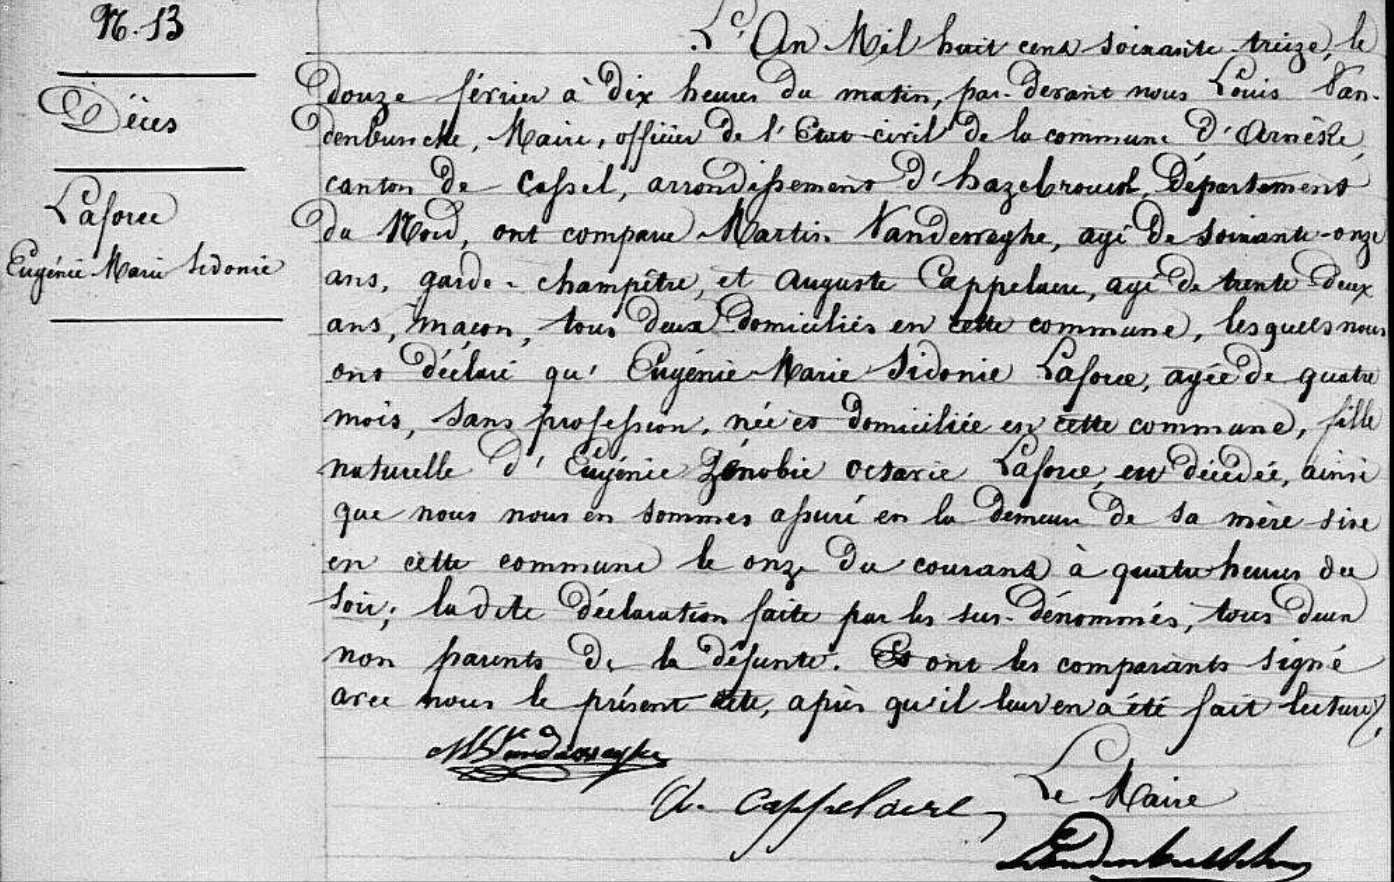 N. 13
Décès
Laforce
Eugénie Marie Sidonie
L'An Mil huit cent soixante-treize, le
douze février à dix heures du matin, par-devant nous Louis Van-
denbussche, Maire, officier de l'Etat-civil de la commune d'Arnèke,
canton de Cassel, arrondissement d'hazebrouck, Département
du Nord, ont comparu Martin Vanderreghe, agé de soixante-onze
ans, garde-champêtre, et Auguste Cappelaere, agé de trente deux
ans, maçon, tous deux domiciliés en cette commune, lesquels nous
ont déclaré qu'Eugénie Marie Sidonie Laforce, agée de quatre
mois, sans profession, née et domiciliée en cette commune, fille
naturelle d'Eugénie Zénobie Octavie Laforce, est décédée, ainsi
que nous nous en sommes assuré en la demeure de sa mère sise
en cette commune le onze du courant à quatre heures du
soir; la dite déclaration faite par les sus-dénommés, tous deux
non parents de la défunte. Et ont les comparants signé
avec nous le présent acte, après qu'il leur en a été fait lecture.
A. Cappelaere
Le Maire